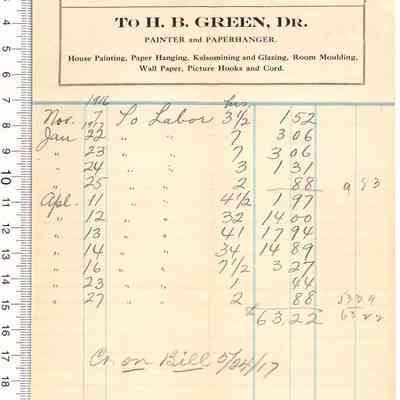 To H. B. GREEN, Dr.
PAINTER and PAPERHANGER.
House Painting, Paper Hanging, Kalsomining and Glazing, Room Moulding,
Wall Paper, Picture Hooks and Cord.
1916 hrs
Nov. 7 To Labor 3 1/2 1 52
1917
Jan 22 " " 7 3 06
" 23 " " 7 3 06
" 24 " " 3 1 31
" 25 " " 2 88 9 83
Apl. 11 " " 4 1/2 1 97
" 12 " " 32 14 00
" 13 " " 41 17 94
" 14 " " 34 14 89
" 16 " " 7 1/2 3 27
" 23 " " 1 44
" 27 " " 2 88 53 39
$63,22 63 22
Cr. on Bill 5/24/17
4
5
6
7
8
9
10
11
12
13
14
15
16
17
18